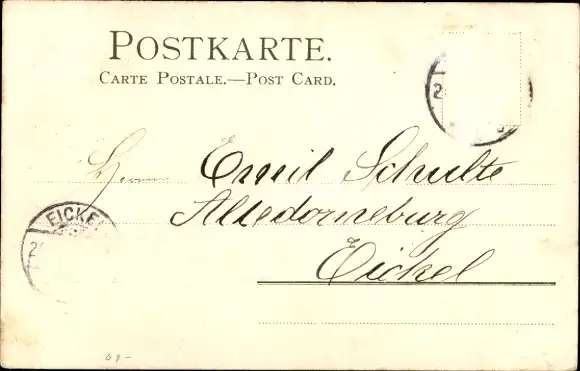 POSTKARTE.
CARTE POSTALE.—POST CARD.
2
Herrn Emil Schulte
Altedorneburg
EICKE
2
Eickel
69-